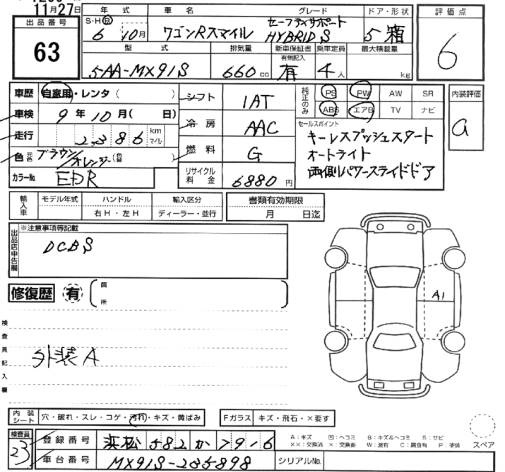 11月27日
出品番号
63
年式 車名 グレード ドア・形状
S・H・R 6年 10月 ワゴンRスマイル セーフティサポート HYBRID S 5 箱
型式 排気量 新車保証書 有無記入 乗車定員 最大積載量
5AA-MX91S 660cc 有 4人 kg
評価点
6
車歴 自家用・レンタ( )
車検 9年 10月( 日)
走行 2,386 km マイル
色 ブラウン/オレンジ
カラーNo. EDR
シフト 1AT
冷房 AAC
燃料 G
リサイクル料金 6880円
純正のみ PS PW AW SR
ABS エアB TV ナビ
セールスポイント
キーレスプッシュスタート
オートライト
両側パワースライドドア
内装評価
a
輸入車 モデル年式 ハンドル 輸入区分
右H・左H ディーラー・並行
書類有効期限
月 日迄
出品店申告欄
※注意事項等記載
DCBS
修復歴 有 箇所
検査員記入欄
外装A
A1
内装シート 穴・破れ・スレ・コゲ・汚れ・キズ・黄ばみ
Fガラス キズ・飛石・×要す
検査員
23
登録番号 浜松 582 か 79-6
車台番号 MX91S-235898
シリアルNo.
A:キズ U:ヘコミ B:キズ&ヘコミ S:サビ
スペア